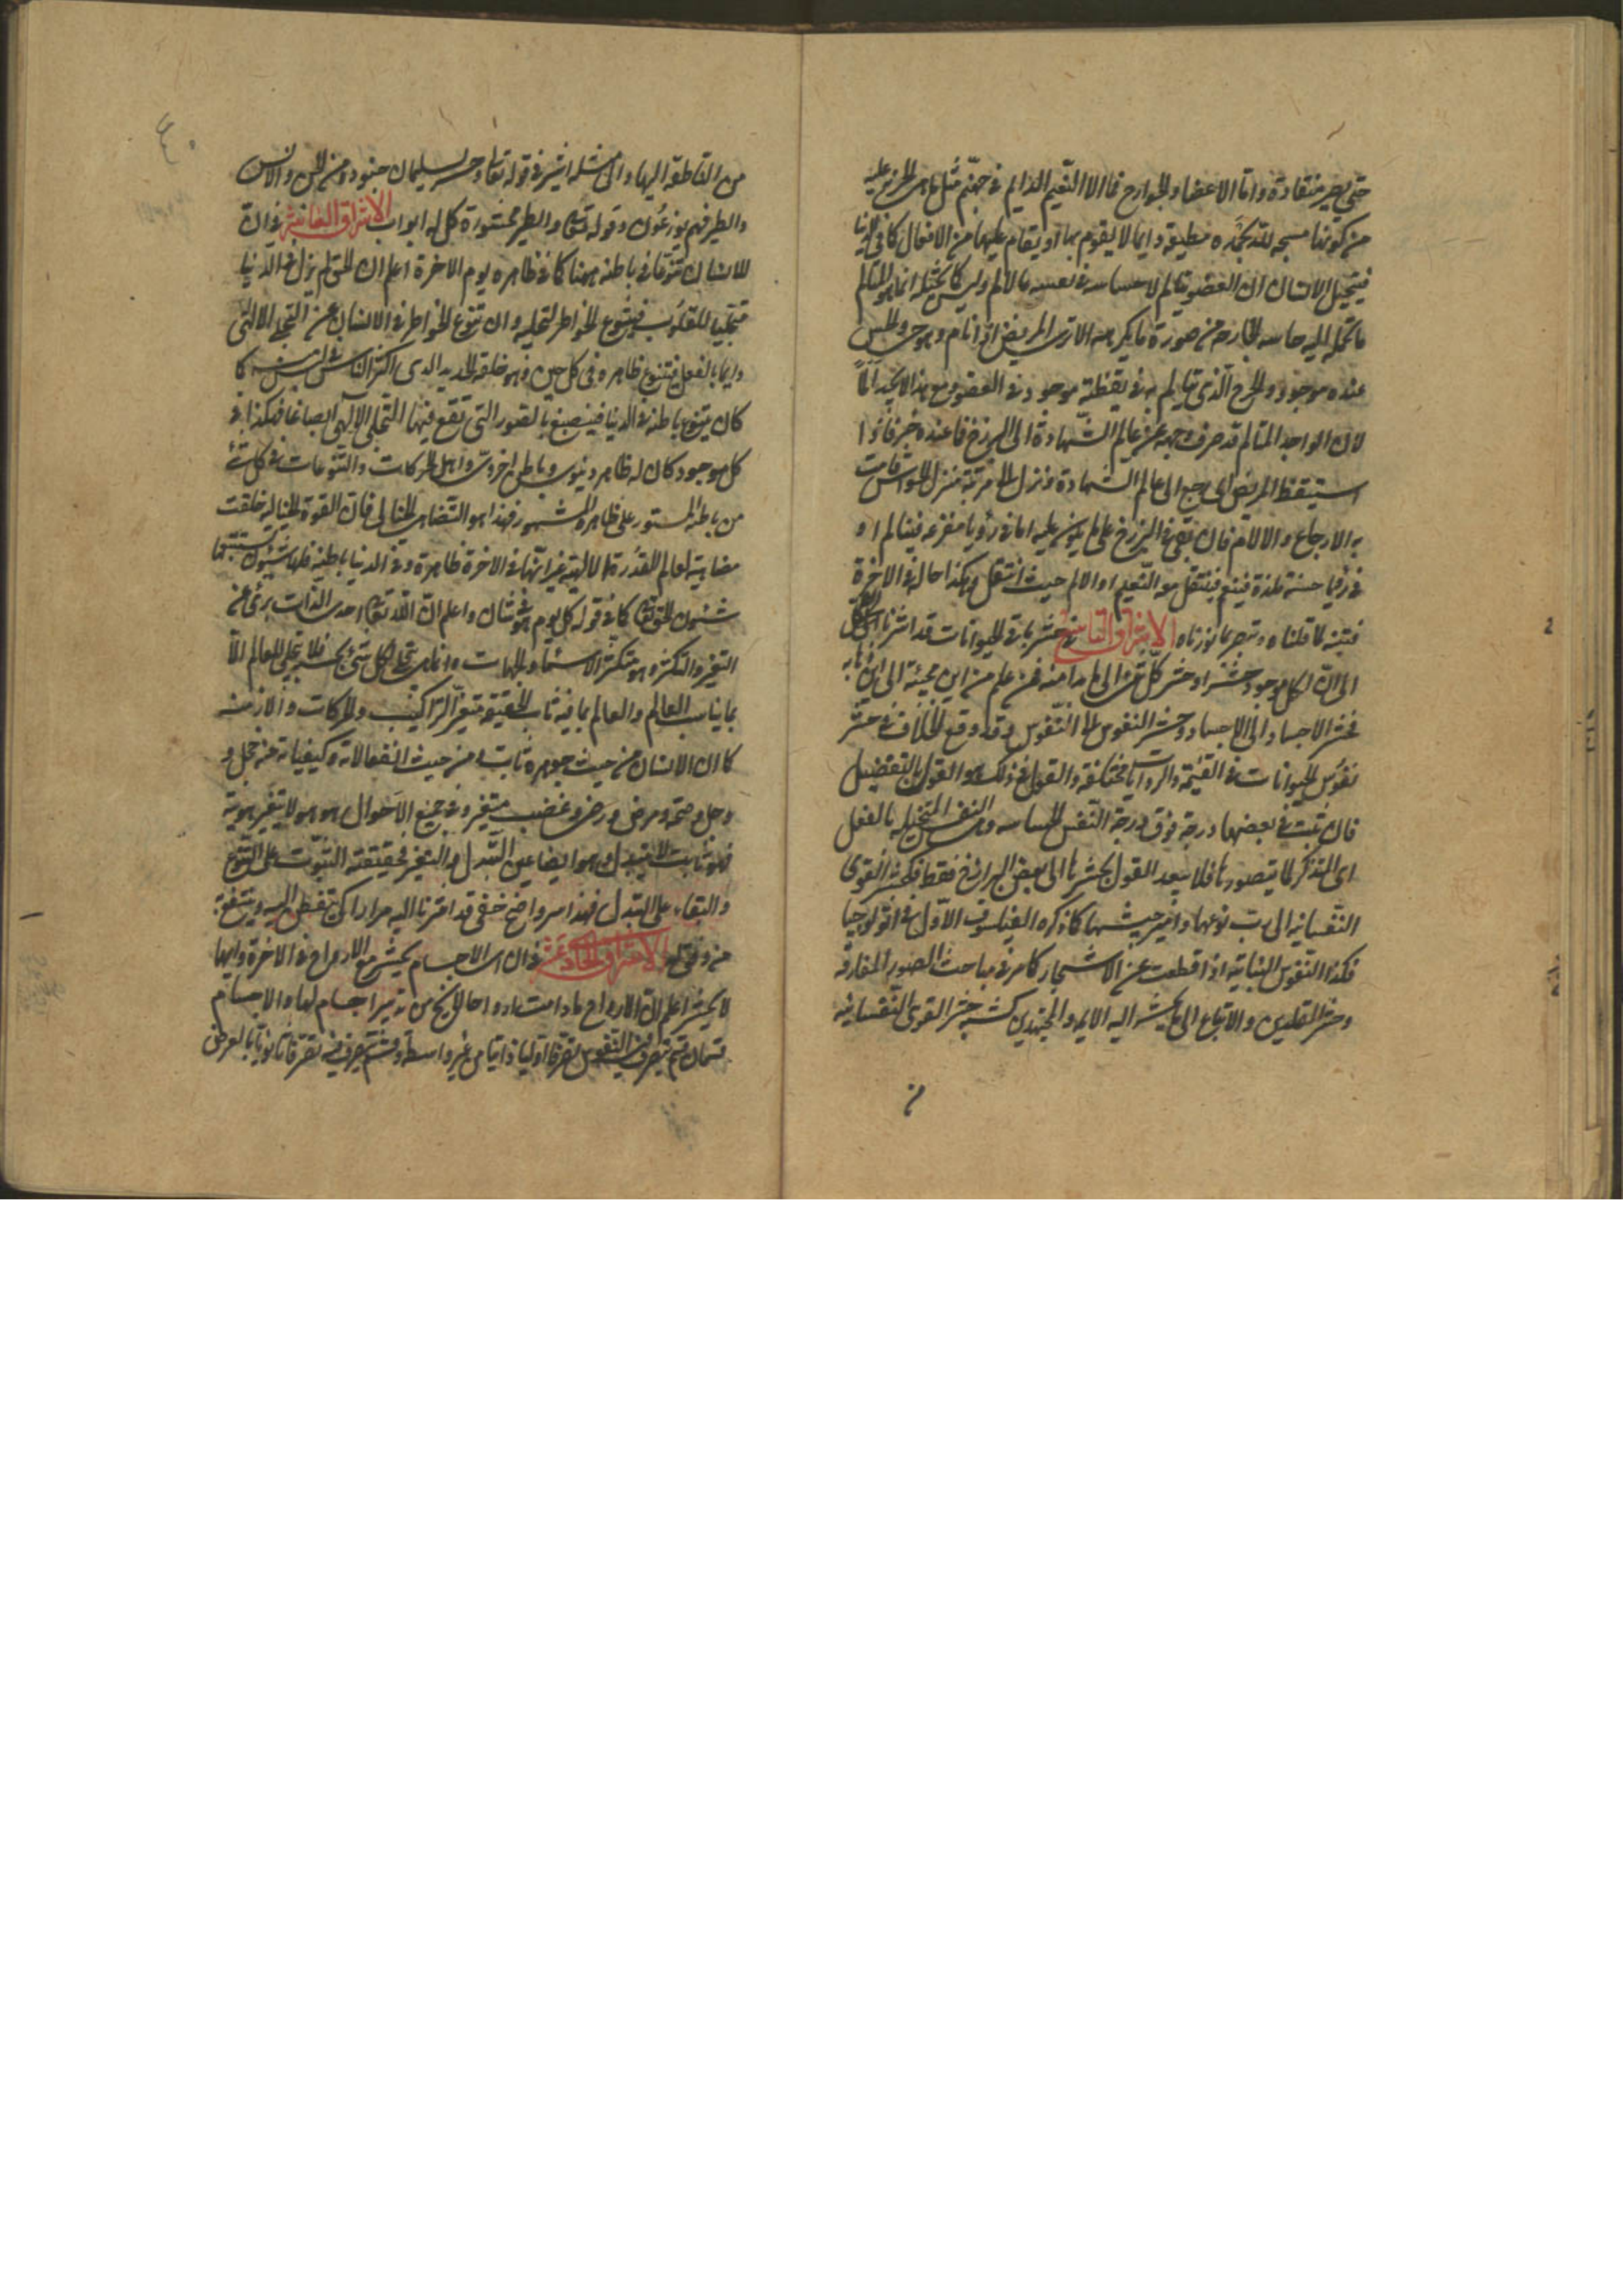 حتى يصير منقادة واما الاعضاء والجوارح فما لها الا النعيم الدايم في جهنم مثل ما هي الخزنة عليه
من كونها مسبحة لله بحمده مطيعة دايما لا يقوم بها او يقام عليها من الافعال كما في الدنيا
فيتخيل الانسان ان العضو يتالم لاحساسه في نفسه بالالم وليس كما يتخيله انما هو المتالم
بما تحمله اليه حاسة الجارحة من صورة ما يكرهه الا ترى المريض اذا نام وهو حي والحس
عنده موجود والجرح الذي يتالم به في يقظته موجود في العضو ومع هذا لا يجد الما
لان الواجد المتالم قد صرف وجهه عن عالم الشهادة الى البرزخ فما عنده خبر فاذا
استيقظ المريض اي رجع الى عالم الشهادة ونزل الى مرتبة منزل الحواس قامت
به الاوجاع والآلام فان بقى في البرزخ على ما يكون عليه اما في رؤيا مفزعة فيتالم او
في رؤيا حسنة ملذة فيتنعم فينتقل معه النعيم او الالم حيث انتقل وهكذا حاله في الاخرة
فتنبه لما قلناه وتبصر بما نورناه الاشراق التاسع في حشر باقي الحيوانات قد اشرنا
الى ان لكل موجود حشرا وحشر كل شئ الى ما بدا منه فمن علم من اين مجيئه الى اين ذهابه
فحشر الاجساد الى الاجساد وحشر النفوس الى النفوس وقد وقع الخلاف في حشر
نفوس الحيوانات في القيمة والروايات مختلفة والقول في ذلك هو القول بالتفصيل
فان ثبت في بعضها درجة فوق درجة النفس الحساسة وهي النفس المتخيلة بالفعل
اي المتذكر لما يتصورها فلا يبعد القول بحشرها الى بعض البرازخ فقط فكحشر القوى
النفسانية الى رب نوعها وامير جيشها كما ذكره الفيلسوف الاول في اثولوجيا
فكذا النفوس النباتية اذا قطعت عن الاشجار كما مر في مباحث الصور المفارقة
وحشر المقلدين والاتباع الى ما يحشر اليه الايمة والمجتهدين كشبه حشر القوى النفسانية
من
٤٠
من الناطقة اليها والى مثله اشير في قوله تعالى وحشر لسليمان جنوده من الجن والانس
والطير فهم يوزعون وقوله تعالى والطير محشورة كل له اواب الاشراق العاشر في ان
للانسان تنوعا في باطنه ههنا كما في ظاهره يوم الاخرة اعلم ان الحق لم يزل في الدنيا
متجليا للقلوب فيتنوع الخواطر لتجليه وان تنوع الخواطر في الانسان عن التجلي الالهي
دايما بالفعل فيتنوع ظاهره في كل حين وهو خلقه الجديد الذي اكثر الناس في لبس منه كما
كان يتنوع باطنه في الدنيا فينصبغ بالصور التي تقع فيها التجلي الالهي انصباغا فهكذا في
كل موجود كان له ظاهر دنيوي وباطن اخروي واهل الحركات والتنوعات في كل شئ
من باطنه المستور على ظاهره المشهور فهذا هو التضاهي الخيالي فان القوة الخيالية خلقت
مضاهية لعالم القدرة الالهية غير انها في الاخرة ظاهرة وفي الدنيا باطنة فلها شئون تستتبعها
شئون الحق تعالى كما في قوله كل يوم هو في شان واعلم ان الله تعالى احدي الذات برئ عن
التغير والتكثر وهو متكثر الاسماء والجهات وانما يتجلى لكل شئ بحسبه فلا يتجلى للعالم الا
بما يناسب العالم والعالم بما فيه ثابت الحقيقة متغير التراكيب والحركات والازمنة
كما ان الانسان من حيث جوهره ثابت ومن حيث انفعالاته وكيفياته من خجل و
وجل وصحة ومرض ورضى وغضب متغير وفي جميع الاحوال هو هو لا يتغير هويته
فهو ثابت لا يتبدل وهو ايضا عين التبدل والتغير فحقيقته الثبوت على التنوع
والبقاء على التبدل فهذا امر واضح خفي قد اشرنا اليه مرارا كي تتفطن اليه وينتفع به
من وفق له الاشراق الحاد عشر في ان اي الاجسام يحشر مع الارواح في الاخرة وايها
لا يحشر اعلم ان الارواح ما دامت ارواحا لا يخ من تدبير اجسام لها والاجسام
قسمان قسم يتصرف فيه النفوس تصرفا اوليا ذاتيا من غير واسطة وقسم يتصرف فيه تصرفا ثانويا بالعرض